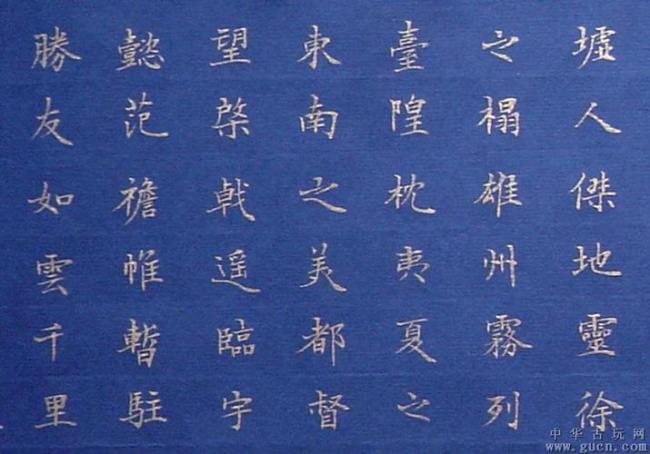 墟人傑地靈徐
之榻雄州霧列
臺隍枕夷夏之
東南之美都督
望棨戟遥臨宇
懿范襜帷暫駐
勝友如雲千里
中华古玩网
www.gucn.com